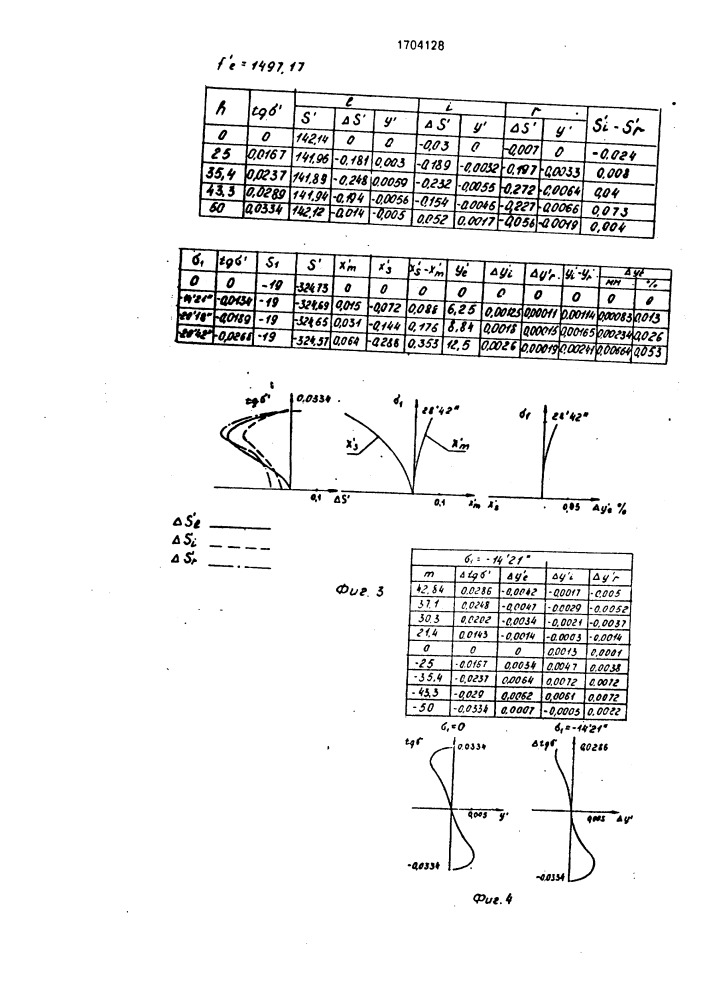 1704128
f'e = 1497,17
h tgб' e i r S'i - S'r
S' ΔS' y' ΔS' y' ΔS' y'
0 0 142,14 0 0 -0,03 0 -0,007 0 -0,024
25 0,0167 141,96 -0,181 0,003 -0,189 -0,0032 -0,197 -0,0033 0,008
35,4 0,0237 141,89 -0,248 0,0059 -0,232 -0,0055 -0,272 -0,0064 0,04
43,3 0,0289 141,94 -0,194 -0,0056 -0,154 -0,0045 -0,227 -0,0066 0,073
50 0,0334 142,12 -0,014 -0,005 0,052 0,0017 -0,056 -0,0019 0,004
б1 tgб' S1 S' x'm x's x's-x'm y'e Δy'i Δy'r y'i-y'r Δy'e
мм %
0 0 -19 -324,73 0 0 0 0 0 0 0 0 0
-14'21" -0,0134 -19 -324,69 0,015 -0,072 0,086 6,25 0,00125 0,00011 0,00114 0,00083 0,013
-20'18" -0,0189 -19 -324,65 0,031 -0,144 0,176 8,84 0,0018 0,00015 0,00165 0,00234 0,026
-28'42" -0,0268 -19 -324,57 0,064 -0,288 0,353 12,5 0,0026 0,00019 0,00241 0,00664 0,053
tgб' 0,0334 б1 28'42" б1 28'42"
x's x'm
0,1 ΔS' 0,1 x'm x's 0,05 Δy'e %
ΔS'e
ΔS'i
ΔS'r
Фиг. 3
б1 = -14'21"
m Δtgб' Δy'e Δy'i Δy'r
42,84 0,0286 -0,0042 -0,0017 -0,005
37,1 0,0248 -0,0047 -0,0029 -0,0052
30,3 0,0202 -0,0034 -0,0021 -0,0037
21,4 0,0143 -0,0014 -0,0003 -0,0014
0 0 0 0,0013 0,0001
-25 -0,0167 0,0034 0,0047 0,0038
-35,4 -0,0237 0,0064 0,0072 0,0072
-43,3 -0,029 0,0062 0,0061 0,0072
-50 -0,0334 0,0007 -0,0005 0,0022
б1=0 б1=-14'21"
tgб 0,0334 Δtgб 0,0286
0,005 y' 0,005 Δy'
-0,0334 -0,0334
Фиг. 4